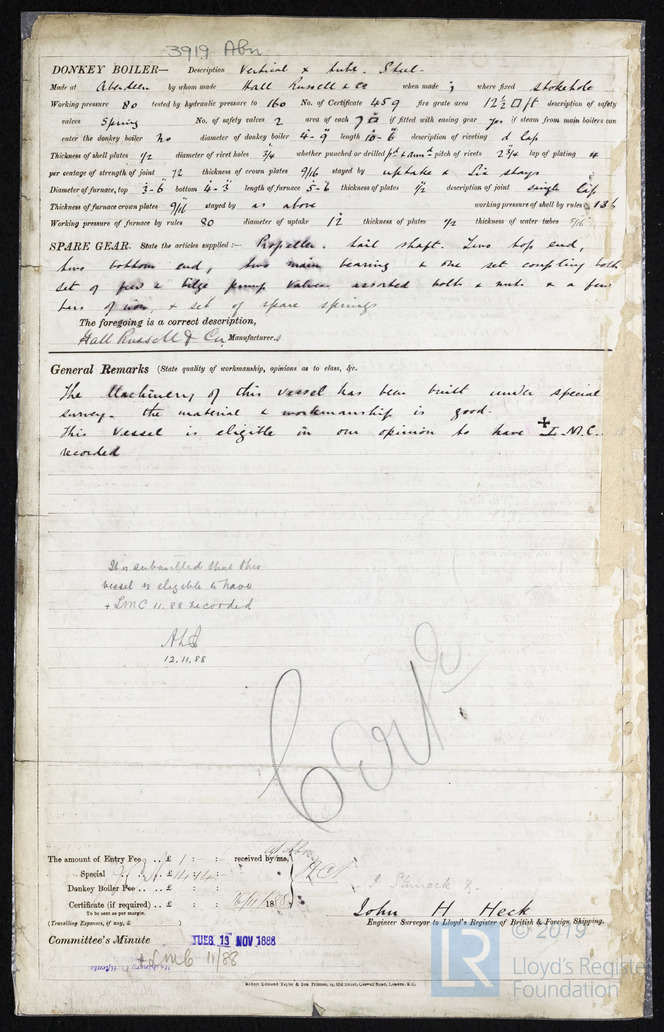 3919 Abn
DONKEY BOILER— Description Vertical & tube. Steel-
Made at Aberdeen by whom made Hall Russell & Co when made where fixed stokehole
Working pressure 80 tested by hydraulic pressure to 160 No. of Certificate 459 fire grate area 12½ □ft description of safety
valves Spring No. of safety valves 2 area of each if fitted with easing gear yes if steam from main boilers can
enter the donkey boiler no diameter of donkey boiler 4-9 length 10-6 description of riveting d lap
Thickness of shell plates 1/2 diameter of rivet holes 3/4 whether punched or drilled pitch of rivets 2 3/4 lap of plating 4
per centage of strength of joint 72 thickness of crown plates 9/16 stayed by uptake & six stays
Diameter of furnace, top 3-6 bottom 4-3 length of furnace 5-6 thickness of plates 1/2 description of joint single lap
Thickness of furnace crown plates 9/16 stayed by as above working pressure of shell by rules 136
Working pressure of furnace by rules 80 diameter of uptake 12 thickness of plates 1/2 thickness of water tubes 5/16
SPARE GEAR. State the articles supplied:— Propeller. tail shaft. Two top end,
two bottom end, two main bearing & one set coupling bolts
set of feed & bilge pump valves assorted bolts & nuts & a few
bars of iron, & set of spare springs
The foregoing is a correct description,
Hall Russell & Co Manufacturer.s
General Remarks (State quality of workmanship, opinions as to class, &c.
The Machinery of this vessel has been built under special
survey- the material & workmanship is good-
This Vessel is eligible in our opinion to have + L.M.C.
recorded
It is submitted that this
vessel is eligible to have
+ LMC 11.88 recorded
12.11.88
The amount of Entry Fee .. £ 1 : - : received by me,
Special .. £ 14 : 4 : -
Donkey Boiler Fee .. .. £ : :
Certificate (if required) .. £ : : 18 88
To be sent as per margin.
(Travelling Expenses, if any, £ )
John H Heck
Engineer Surveyor to Lloyd's Register of British & Foreign Shipping.
Committee's Minute TUES 13 NOV 1888
+ LMC 11/88
© 2019
LR Lloyd's Register
Foundation
Robert Edmund Taylor & Son Printers, 19, Old Street, Goswell Road, London, E.C.